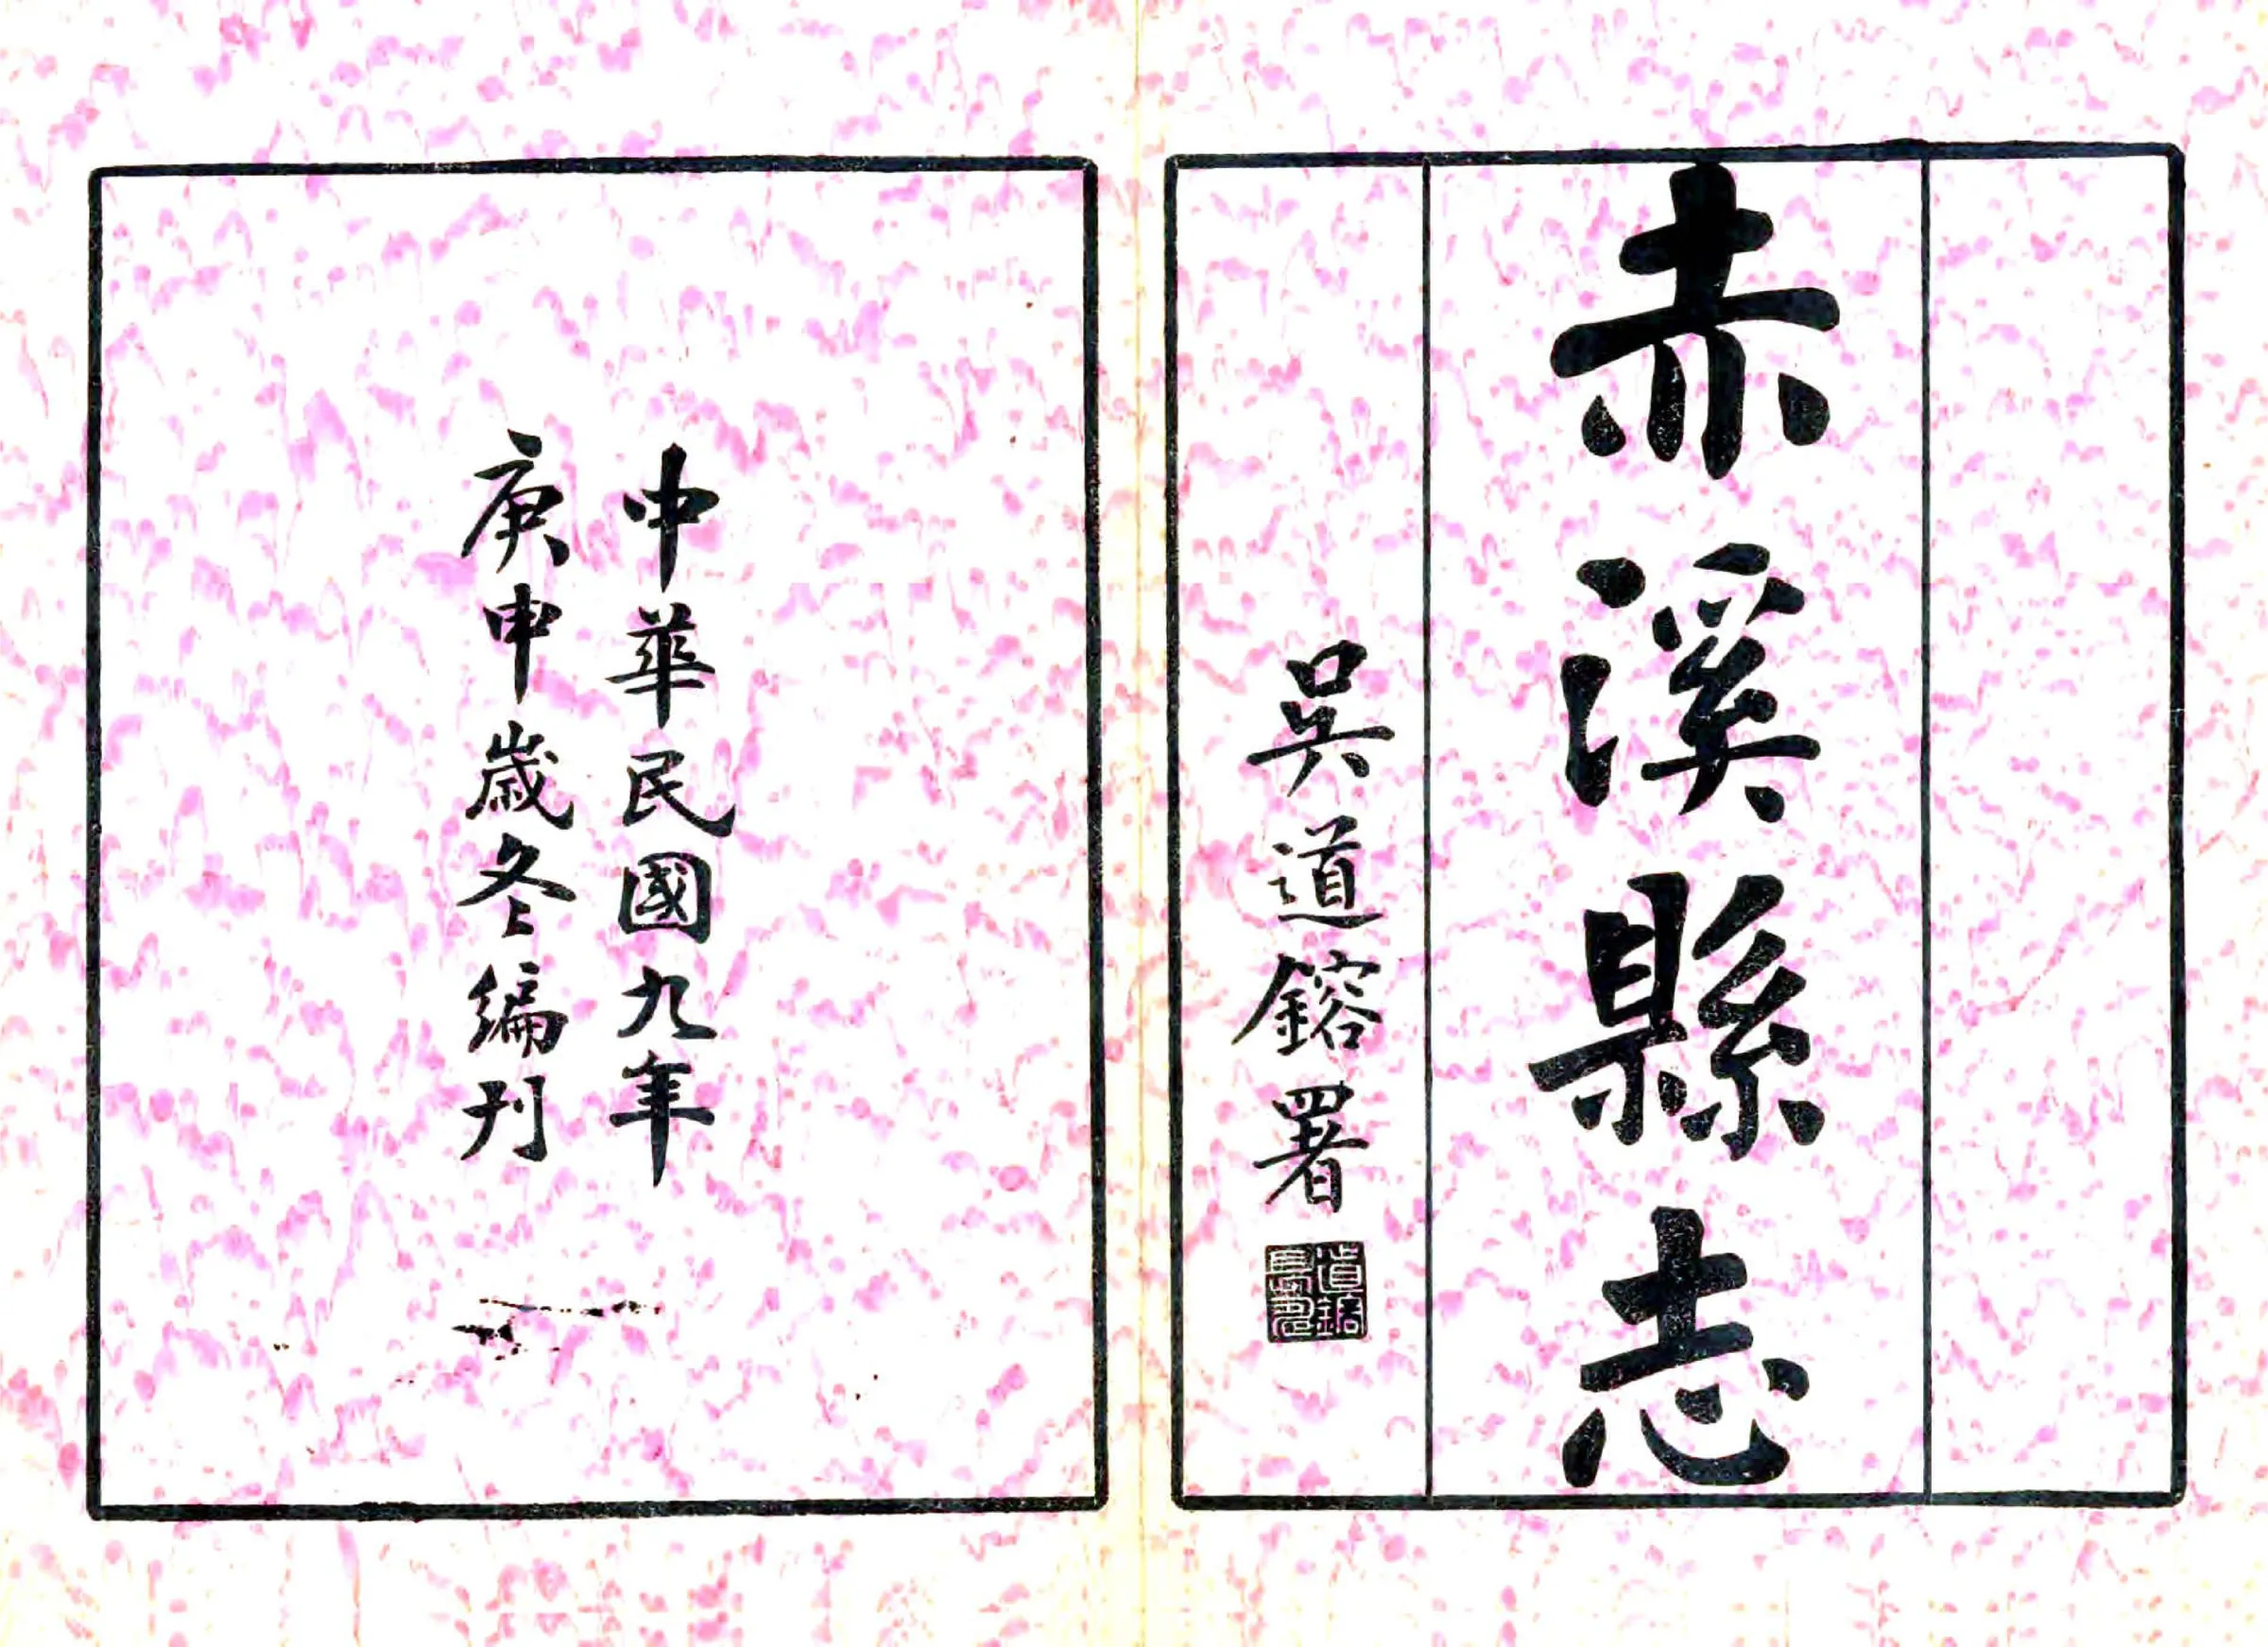 赤溪縣志
吳道鎔署
中華民國九年
庚申歲冬編刊